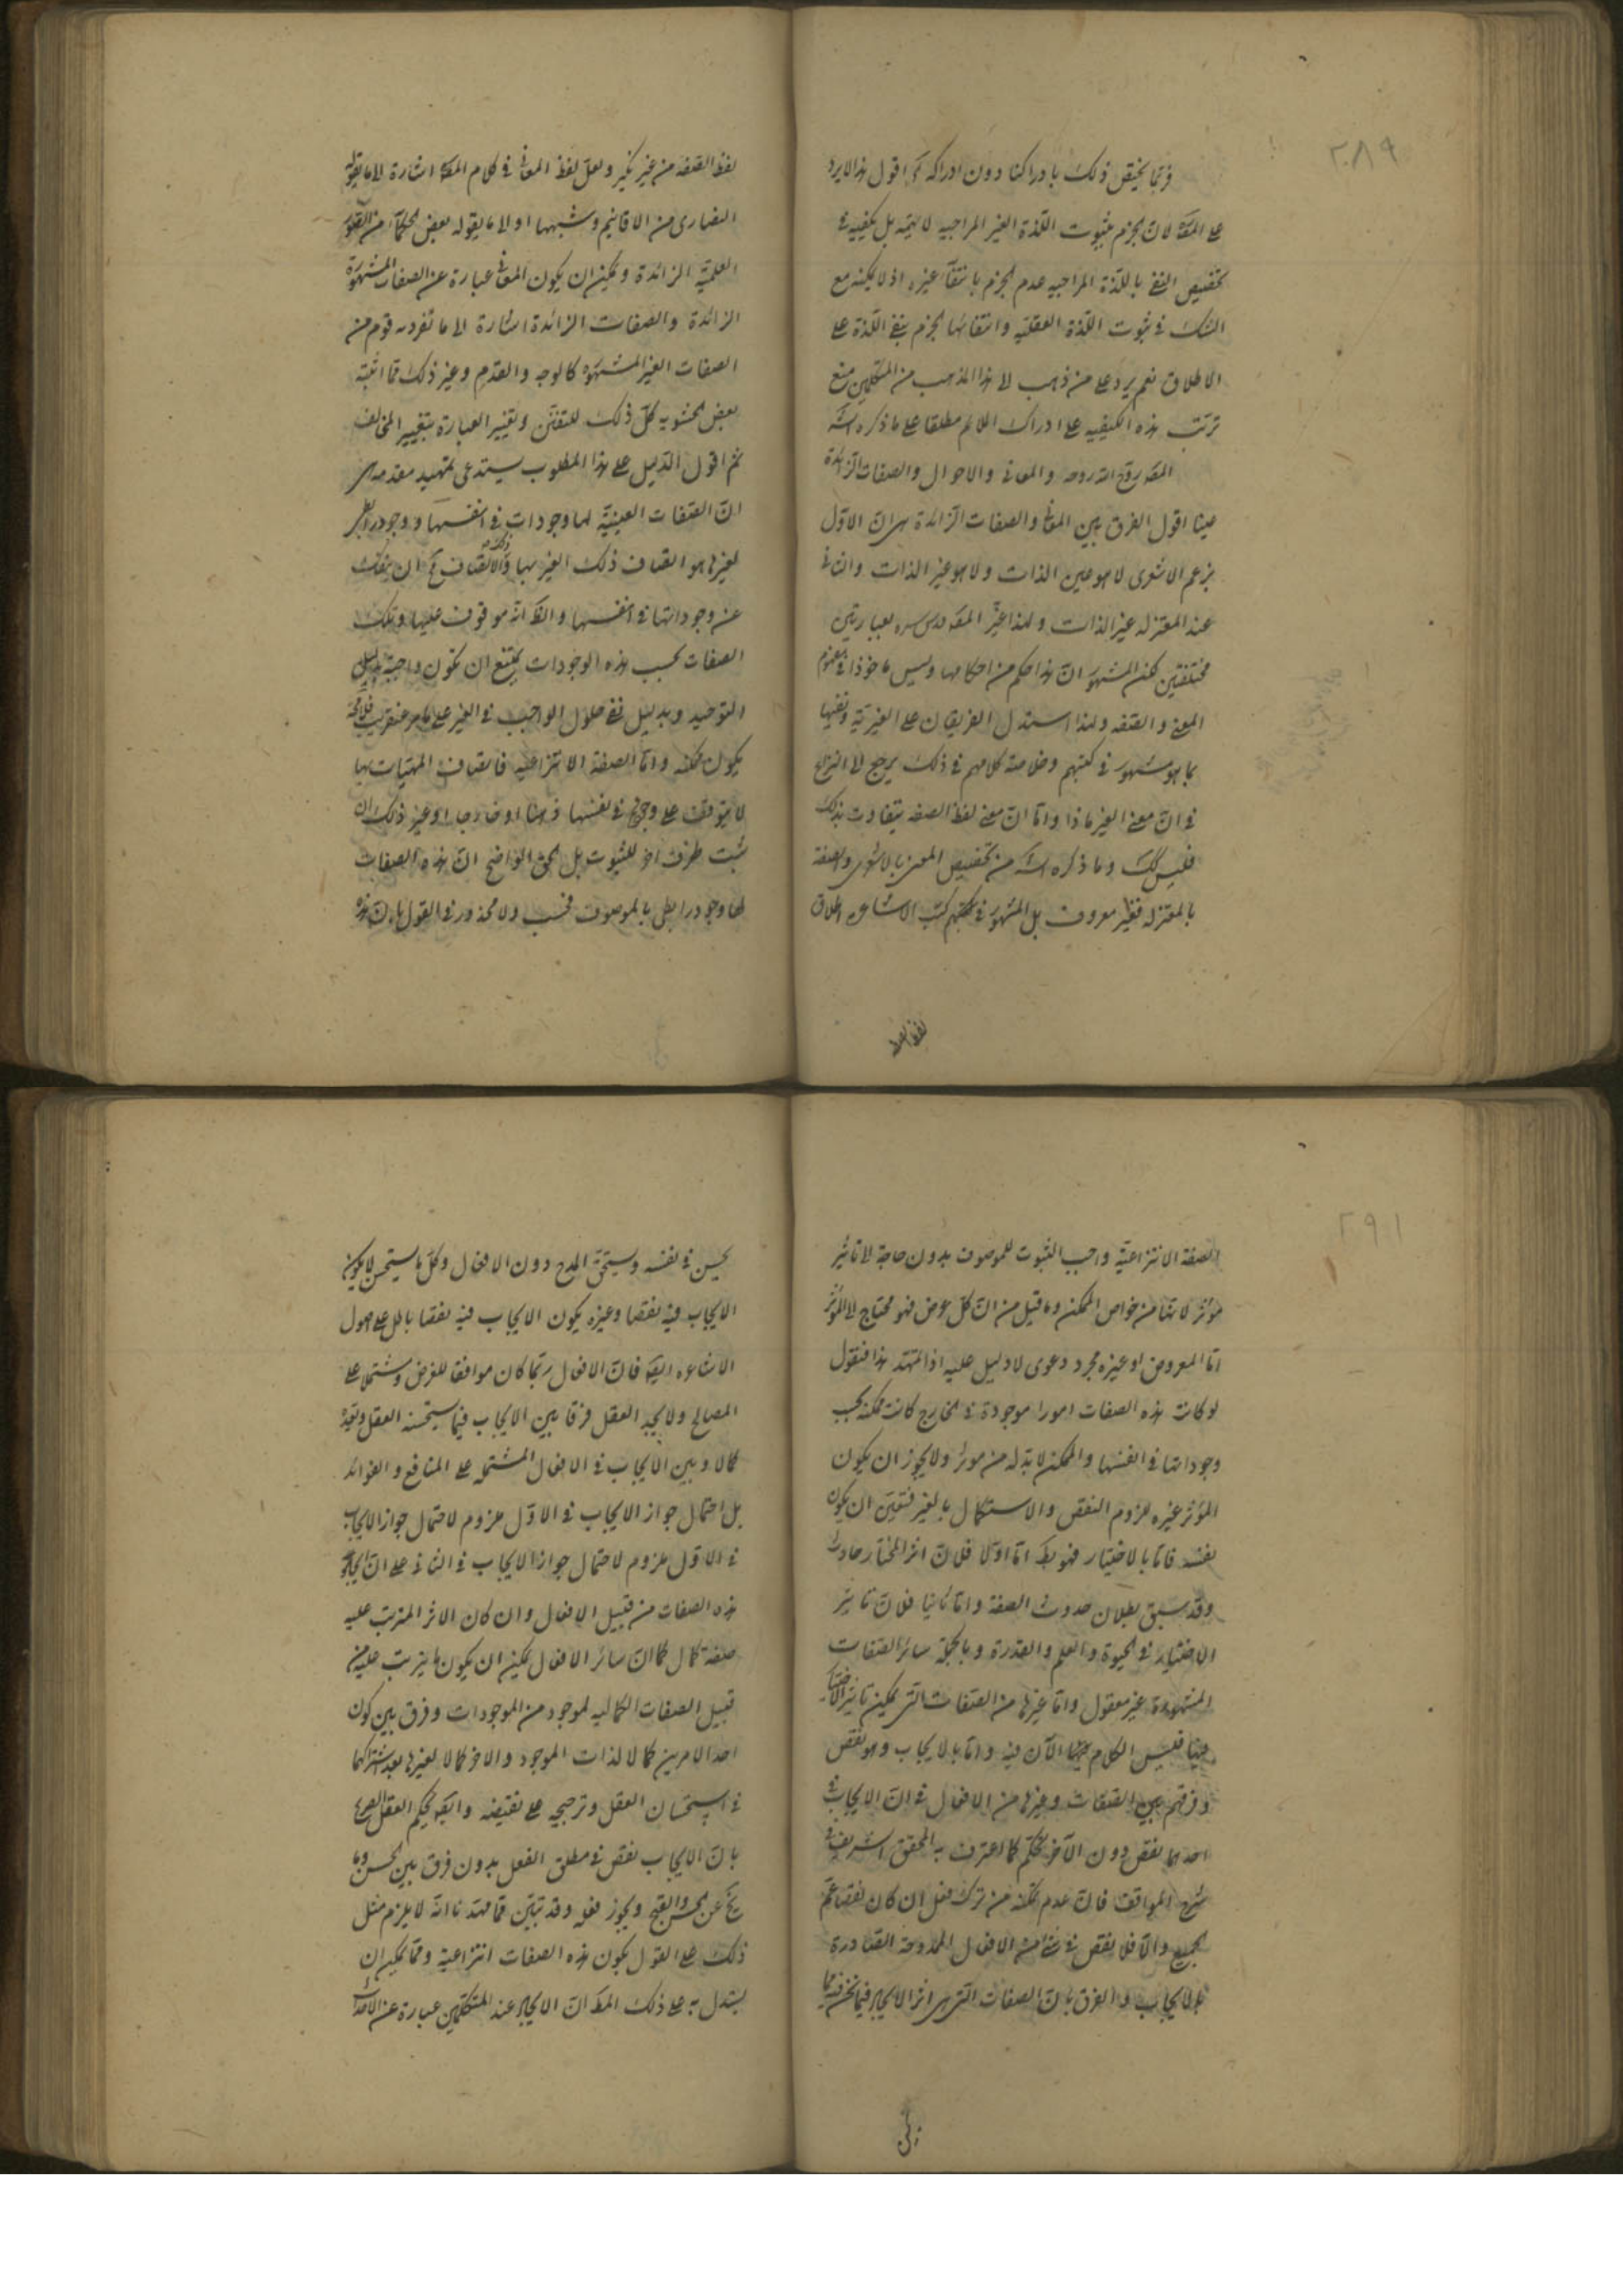 ٢٨٩
فربما يختص ذلك بادراكنا دون ادراكه تَع اقول هذا لا يرد
على المصَ لان الجزم بثبوت اللذة الغير المزاجيه لا يتمه بل يكفيه في
تخصيص النفى باللذة المزاجيه عدم الجزم بانتفآء غيره اذ لا يمكنه مع
الشك في ثبوت اللذة العقليه وانتفائها الجزم بنفى اللذة على
الاطلاق نعم يرد على من ذهب الى هذا المذهب من المتكلمين منع
ترتب هذه الكيفيه على ادراك الملائم مطلقا على ما ذكره الشَ
المصَ روح الله روحه والمعانى والاحوال والصفات الزائدة
عينا اقول الفرق بين المعانى والصفات الزائدة هى ان الاول
بزعم الاشعرى لا هو عين الذات ولا هو غير الذات والثانى
عند المعتزله غير الذات ولهذا عبّر المصَ قدس سره بعبارتين
مختلفتين لكن المشهور ان هذا حكم من احكامها وليس ماخوذا فى مفهوم
المعنى والصفه ولهذا استدل الفريقان على الغيريّة ونفيها
بما هو مشهور في كتبهم وخلاصة كلامهم في ذلك يرجع الى النزاع
في ان معنى الغير ماذا واما ان معنى لفظ الصفه يتفاوت بذلك
فليس كك وما ذكره الشَ من تخصيص المعنى بالاشعرى والصفة
بالمعتزله فغير معروف بل المشهور في كتبهم كتب الاشاعره اطلاق
لفظ الصفه
لفظ الصفه من غير نكير ولعل لفظ المعانى في كلام المصَ اشارة الى ما يقوله
النصارى من الاقانيم وشبهها او الى ما يقوله بعض الحكمآء من الصّور
العلميّة الزائدة ويمكن ان يكون المعانى عبارة عن الصفات المشهورة
الزائدة والصفات الزائدة اشارة الى ما تفرد به قوم من
الصفات الغير المشهوره كالوجه والقدم وغير ذلك مما اثبته
بعض الحشويه كل ذلك للتفنّن وتغيير العبارة بتغيير المخالف
ثم اقول الدّليل على هذا المطلوب يستدعى تمهيد مقدمه هى
انّ الصّفات العينيّة لها وجودات في انفسها ووجود رابطى
لغيرها هو اتصاف ذلك الغير بها وذلك الاتّصاف يمكن ان ينفك
عن وجوداتها في انفسها والظَ انّه موقوف عليها وتلك
الصفات بحسب هذه الوجودات يمتنع ان تكون واجبة بدليل
التوحيد وبدليل نفى حلول الواجب في الغير على ما مر عنقريب فلا محة
يكون ممكنه وامّا الصفة الانتزاعيه فاتصاف المهيّات بها
لا يتوقف على وجودها في نفسها ذهنا او خارجا او غير ذلك ان
ثبت ظرف اخر للثبوت بل الحق الواضح انّ هذه الصفات
لها وجود رابطى بالموصوف فحسب ولا محذور في القول بانّ هذه
٢٩١
الصفة الانتزاعيّة واجب الثبوت للموصوف بدون حاجة الى تاثير
مؤثر لانها من خواص الممكن وما قيل من انّ كل عرض فهو محتاج الى المؤثر
امّا المعروض او غيره مجرد دعوى لا دليل عليه اذا تمهّد هذا فنقول
لو كانت هذه الصفات امورا موجودة في الخارج كانت ممكنه بحسب
وجوداتها في انفسها والممكن لا بدّ له من موثر ولا يجوز ان يكون
المؤثر غيره للزوم النقص والاستكمال بالغير فتعيّن ان يكون
نفسه فامّا بالاختيار فهو بطَ امّا اوّلا فلانّ اثر المختار حادث
وقد سبق بطلان حدوث الصفة وامّا ثانيا فلانّ تاثير
الاختيار في الحيوة والعلم والقدرة وبالجملة سائر الصّفات
المشهورة غير معقول وامّا غيرها من الصّفات التى يمكن تاثير الاختيار
فيها فليس الكلام الآن فيه وامّا بالايجاب وهو نقص
وفرقهم بين الصّفات وغيرها من الافعال في انّ الايجاب في
احدهما نقص دون الآخر تحكم كما اعترف به المحقق الشريف في
شرح المواقف فانّ عدم تمكّنه من ترك فعل ان كان نقصا عمّ
الجميع والّا فلا نقص في شئ من الافعال الممدوحة الصّادرة
بالايجاب والفرق بانّ الصفات التى هى اثر الايجاب فيما نحن فيه مما
يحسن في نفسه ويستحق المدح دون الافعال وكل ما يستحسن لا يكون
الايجاب فيه نقصا وغيره يكون الايجاب فيه نقصا باطل على اصول
الاشاعره ايضَ فانّ الافعال ربّما كان موافقا للغرض ومشتملا على
المصالح ولا يجد العقل فرقا بين الايجاب فيما يستحسنه العقل ويعدّه
كمالا وبين الايجاب في الافعال المشتمله على المنافع والفوائد
بل احتمال جواز الايجاب في الاوّل ملزوم لاحتمال جواز الايجاب
في الاوّل ملزوم لاحتمال جواز الايجاب في الثانى على انّ ايجاد
هذه الصفات من قبيل الافعال وان كان الاثر المترتب عليه
صفة كمال كما انّ سائر الافعال يمكن ان يكون ما يترتب عليه من
قبيل الصفات الكماليه لموجود من الموجودات وفرق بين كون
احد الامرين كمالا لذات الموجد والاخر كمالا لغيرها بعد اشتراكهما
في استحسان العقل وترجيحه على نقيضه وايضَ يحكم العقل الصريح
بانّ الايجاب نقص في مطلق الفعل بدون فرق بين الحسن وما
يخ عن الحسن والقبح ويجوز فعله وقد تبيّن ممّا مهّدنا انّه لا يلزم مثل
ذلك على القول بكون هذه الصفات انتزاعية وممّا يمكن ان
يستدل به على ذلك المطَ انّ الايجاد عند المتكلّمين عبارة عن الاحداث